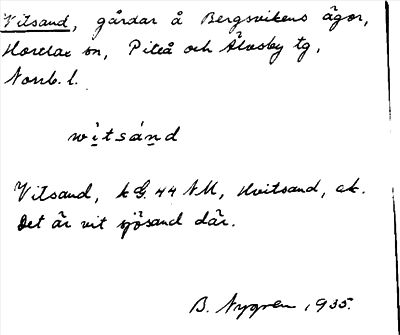 Vitsand, gårdar å Bergsvikens ägor,
Hortlax sn, Piteå och Älvsby tg,
Norrb. l.
witsánd
Vitsand, k G. 44 NM, Hvitsand, ak.
Det är vit sjösand där.
B. Nygren, 1935.